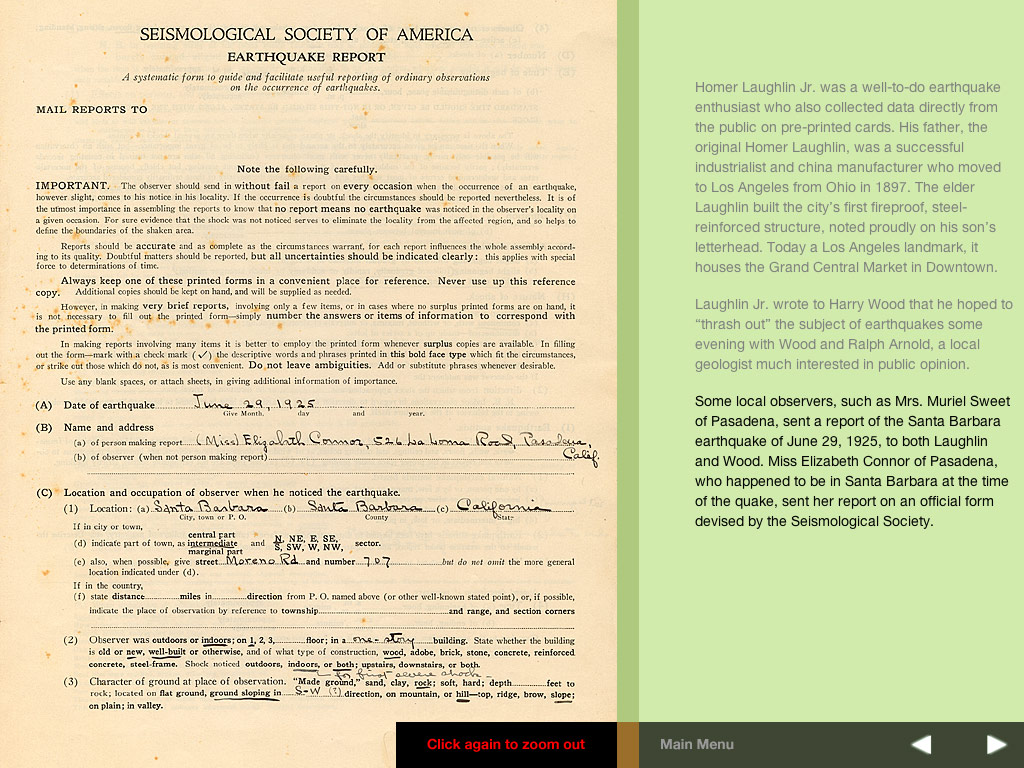 SEISMOLOGICAL SOCIETY OF AMERICA
EARTHQUAKE REPORT
A systematic form to guide and facilitate useful reporting of ordinary observations
on the occurrence of earthquakes.
MAIL REPORTS TO
Note the following carefully.
IMPORTANT. The observer should send in without fail a report on every occasion when the occurrence of an earthquake,
however slight, comes to his notice in his locality. If the occurrence is doubtful the circumstances should be reported nevertheless. It is of
the utmost importance in assembling the reports to know that no report means no earthquake was noticed in the observer's locality on
a given occasion. For sure evidence that the shock was not noticed serves to eliminate the locality from the affected region, and so helps to
define the boundaries of the shaken area.
Reports should be accurate and as complete as the circumstances warrant, for each report influences the whole assembly accord-
ing to its quality. Doubtful matters should be reported, but all uncertainties should be indicated clearly: this applies with special
force to determinations of time.
Always keep one of these printed forms in a convenient place for reference. Never use up this reference
copy. Additional copies should be kept on hand, and will be supplied as needed.
However, in making very brief reports, involving only a few items, or in cases where no surplus printed forms are on hand, it
is not necessary to fill out the printed form—simply number the answers or items of information to correspond with
the printed form.
In making reports involving many items it is better to employ the printed form whenever surplus copies are available. In filling
out the form—mark with a check mark (✓) the descriptive words and phrases printed in this bold face type which fit the circumstances,
or strike out those which do not, as is most convenient. Do not leave ambiguities. Add or substitute phrases whenever desirable.
Use any blank spaces, or attach sheets, in giving additional information of importance.
(A) Date of earthquake June 29, 1925
Give Month. day and year.
(B) Name and address
(a) of person making report (Miss) Elizabeth Connor, 526 La Loma Road, Pasadena,
Calif.
(b) of observer (when not person making report)
(C) Location and occupation of observer when he noticed the earthquake.
(1) Location: (a) Santa Barbara (b) Santa Barbara (c) California
City, town or P. O. County State
If in city or town,
(d) indicate part of town, as central part intermediate marginal part and N, NE, E, SE, S, SW, W, NW, sector.
(e) also, when possible, give street Moreno Rd and number 707 but do not omit the more general
location indicated under (d).
If in the country,
(f) state distance miles in direction from P. O. named above (or other well-known stated point), or, if possible,
indicate the place of observation by reference to township and range, and section corners
(2) Observer was outdoors or indoors; on 1, 2, 3, floor; in a one-story building. State whether the building
is old or new, well-built or otherwise, and of what type of construction, wood, adobe, brick, stone, concrete, reinforced
concrete, steel-frame. Shock noticed outdoors, indoors, or both; upstairs, downstairs, or both.
for first severe shock
(3) Character of ground at place of observation. "Made ground," sand, clay, rock; soft, hard; depth feet to
rock; located on flat ground, ground sloping in S-W (?) direction, on mountain, or hill—top, ridge, brow, slope;
on plain; in valley.
Click again to zoom out
Homer Laughlin Jr. was a well-to-do earthquake
enthusiast who also collected data directly from
the public on pre-printed cards. His father, the
original Homer Laughlin, was a successful
industrialist and china manufacturer who moved
to Los Angeles from Ohio in 1897. The elder
Laughlin built the city's first fireproof, steel-
reinforced structure, noted proudly on his son's
letterhead. Today a Los Angeles landmark, it
houses the Grand Central Market in Downtown.
Laughlin Jr. wrote to Harry Wood that he hoped to
“thrash out” the subject of earthquakes some
evening with Wood and Ralph Arnold, a local
geologist much interested in public opinion.
Some local observers, such as Mrs. Muriel Sweet
of Pasadena, sent a report of the Santa Barbara
earthquake of June 29, 1925, to both Laughlin
and Wood. Miss Elizabeth Connor of Pasadena,
who happened to be in Santa Barbara at the time
of the quake, sent her report on an official form
devised by the Seismological Society.
Main Menu